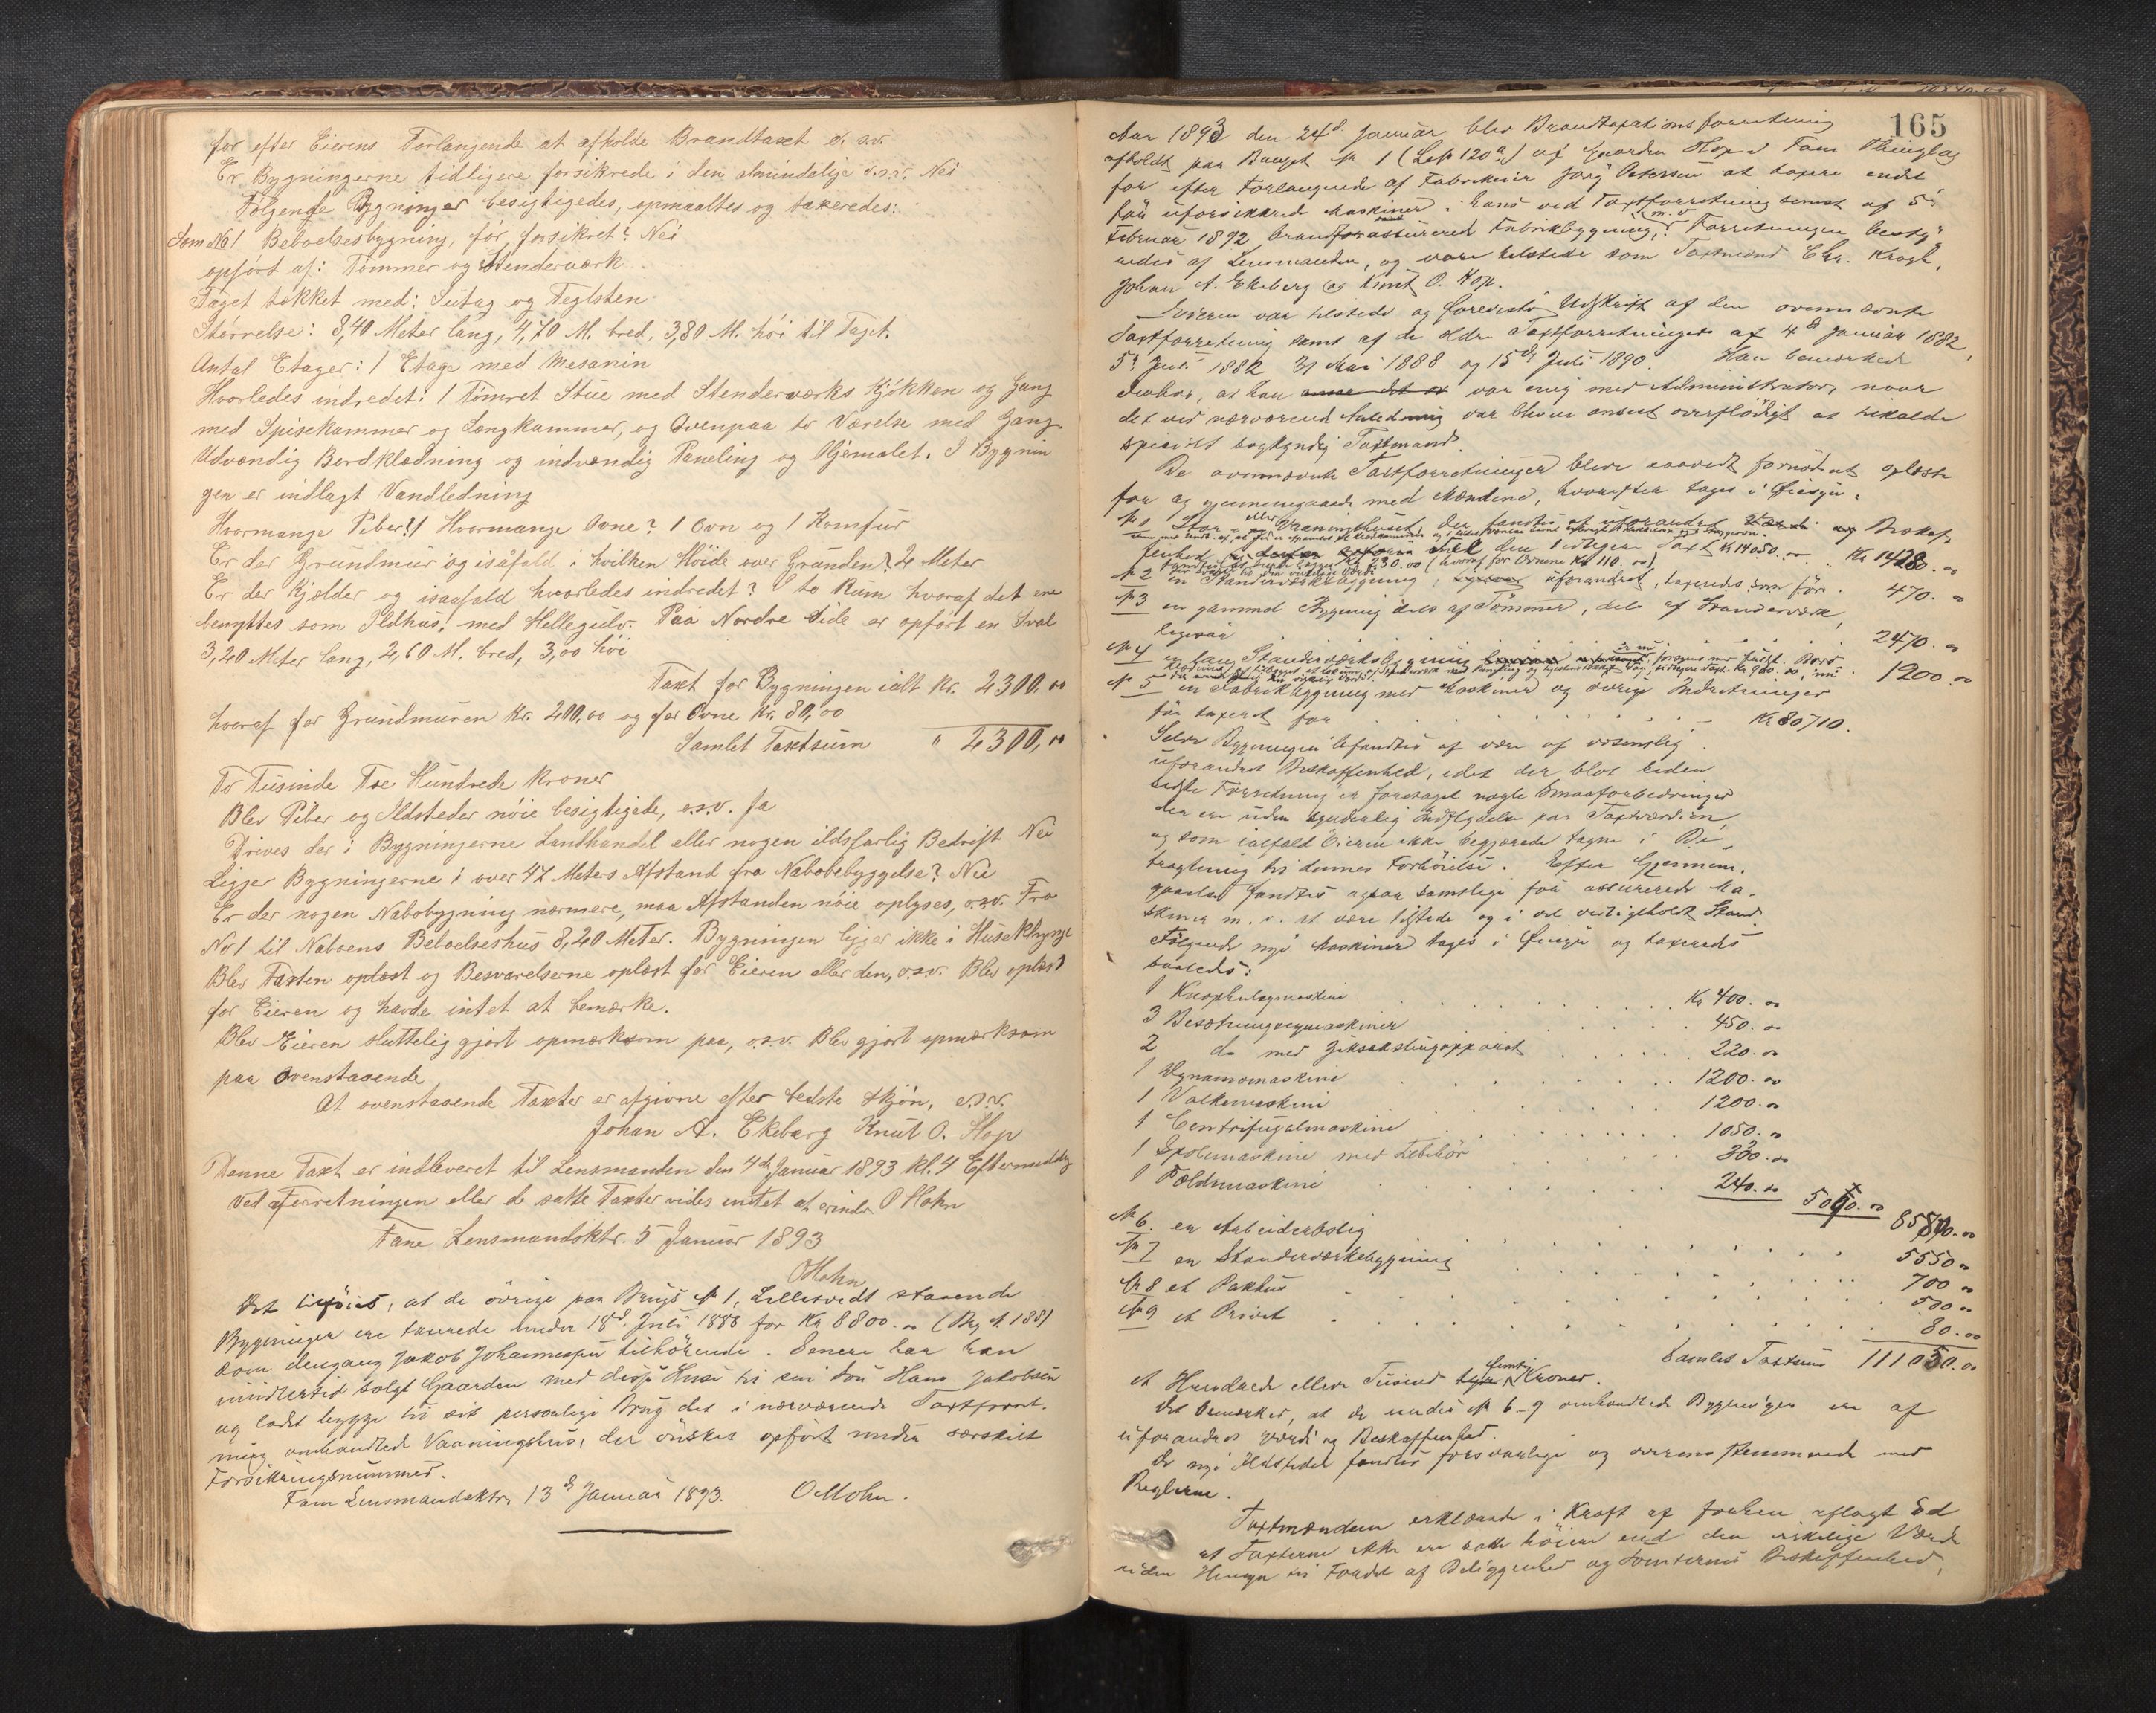 for efter Eierens Forlangende at afholde Brandtaxt o. s.v.
Er Bygningerne tidligere forsikrede i den almindelige o.s.v. Nei
Følgende Bygninger besigtigedes, opmaaltes og taxeredes:
Som No 1 Beboelsesbygning, før forsikret? Nei
opført af: Tømmer og Stenderværk
Taget tækket med: Sutag og Teglsten
Størrelse: 8,40 Meter lang, 4,70 M. bred, 3,80 M. høi til Taget.
Antal Etager: 1 Etage med Mesanin
Hvorledes indredet: 1 Tømret Stue med Stenderværks Kjøkken og Gang
med Spisekammer og Sengkammer, og Ovenpaa to Værelse med Gang
Udvendig Bordklædning og indvendig Paneling og Oljemalet. I Bygnin
gen er indlagt Vandledning
Hvormange Piber? 1 Hvormange Ovne? 1 Ovn og 1 Komfur
Er der Grundmur og isåfald i hvilken Høide over Grunden? 2 Meter
Er der Kjelder og isaafald hvorledes indredet? I to Rum hvoraf det ene
benyttes som Ildhus, med Hellegulv. Paa Nordre Side er opført en Sval
3,20 Meter lang, 2,60 M. bred, 3,00 høi
Taxt for Bygningen ialt Kr. 2300,00
hvoraf for Grundmuren Kr. 200,00 og for Ovne Kr. 80,00
Samlet Taxtsum " 2300,00
To Tusinde Tre Hundrede Kroner
Blev Piber og Ildsteder nöie besigtigede, o.s.v. Ja
Drives der i Bygningerne Landhandel eller nogen ildsfarlig Bedrift Nei
Ligger Bygningerne i over 47 Meters Afstand fra Nabobebyggelse? Nei
Er der nogen Nabobygning nærmere, maa Afstanden nöie oplyses, o.s.v. Fra
No 1 til Naboens Beboelseshus 8,20 Meter. Bygningen ligger ikke i Huseklynge
Blev Taxten oplæst og Besvarelserne oplæst for Eieren eller den, o.s.v. Blev oplæst
for Eieren og havde intet at bemærke.
Blev Eieren sluttelig gjort opmærksom paa, o.s.v. Blev gjort opmærksom
paa Ovenstaaende
At ovenstaaende Taxter er afgivne efter bedste Skjön, o.s.v.
Johan A. Ekeberg Knut O. Hop
Denne Taxt er indleveret til Lensmanden den 4de Januar 1893 Kl. 4 Eftermiddag
Ved Forretningen eller de satte Taxter vides intet at erindre O Mohn
Fane Lensmandsktr. 5 Januar 1893
O Mohn
Det tilføies, at de övrige paa Brugs No 1, Lillesvedt staaende
Bygninger ere taxerede under 18de Juli 1888 for Kr 8800.00 (Bg. 188)
som dengang Jakob Johannessen tilhörende. Senere har han
imidlertid solgt Gaarden med disse Huse til sin Sön Hans Jakobsen
og ladt bygge til sit personlige Brug det i nærværende Taxtforret-
ning omhandlede Vaaningshus, der önskes opført under særskilt
Forsikringsnummer.
Fane Lensmandsktr. 13de Januar 1893. O Mohn.
165
Aar 1893 den 24de Januar blev Brandtaxationsforretning
afholdt paa Bruget No 1 (Lno 120a) af Gaarden Hop i Fane Thinglag
for efter Forlangende af Fabrikeier Jørg Petersen at taxere endel
før uforsikrede Maskiner i hans ved Taxtforretning senest af 5te
Februar 1892 brandforassurerede Fabrikbygning m.v. Forretningen besty-
redes af Lensmanden, og vare tilstede som Taxtmænd Chr. Krogh,
Johan A. Ekeberg og Knut O. Hop.
Eieren var tilstede og foreviste Udskrift af den ovennævnte
Taxtforretning samt af de ældre Taxtforretninger af 4de Januar 1882,
5te Juli 1882 31 Mai 1888 og 15de Juli 1890. Han bemærkede
derhos, at han var enig med Administrator, naar
det ved nærværende Anledning var bleven anseet overflödigt at tilkalde
specielt bygkyndig Taxtmand.
De ovennævnte Taxtforretninger bleve saavidt fornödent oplæste
for og gjennemgaaede med Mændene, hvorefter toges i Öiesyn:
No 1 Stor- eller Vaaningshuset, der fandtes af uforandret Beskaf-
fenhed den tidligere Taxt Kr 14050.00 Kr 14280.00
Kr 230.00 (hvoraf for Ovnene Kr 110.00)
No 2 en Stenderværksbygning, uforandret, taxeredes som för 470.00
No 3 en gammel Bygning dels af Tömmer, dels af Stenderværk,
ligesaa 2470.00
No 4 en lang Stenderværksbygning 1200.00
No 5 en Fabrikbygning med Maskiner og övrige Indretninger
før taxeret for Kr 80710.
Selve Bygningen befandtes af være af væsentlig
uforandret Beskaffenhed, idet der blot siden
sidste Forretning er foretaget nogle Smaaforbedringer
der ere uden synderlig Indflydelse paa Taxtværdien,
og som ialfald Eieren ikke begjærede tagne i Be-
tragtning til dennes Forhöielse. Efter Gjennem-
gaaelse fandtes ogsaa samtlige för assurerede Ma-
skiner m. v. at være tilstede og i vel vedligeholdt Stand.
Følgende nye Maskiner toges i Öiesyn og taxeredes
saaledes:
1 Knaphulsymaskine Kr 400.00
3 Besætningssymaskiner 450.00
2 do med Ziksakstingapparat 220.00
1 Dynamomaskine 1200.00
1 Valkemaskine 1200.00
1 Centrifugalmaskine 1050.00
1 Spolemaskine med Tilbehör 300.00
1 Foldemaskine 240.00 5060.00 85770.00
No 6. en Arbeiderbolig 5550.00
No 7 en Stenderværksbygning 700.00
No 8 et Pakhus 500.00
No 9 et Privet 80.00
Samlet Taxtsum 111050.00
et Hundrede elleve Tusind femti Kroner.
Det bemærkes, at de under No 6-9 omhandlede Bygninger ere af
uforandret Værdi og Beskaffenhed.
De nye Ildsteder fandtes forsvarlige og overensstemmende med
Reglerne.
Taxtmændene erklærede i Kraft af forhen aflagt Ed
at Taxterne ikke ere satte höiere end den virkelige Værdi
uden Hensyn til Fordel af Beliggenhed og Tomternes Beskaffenhed,